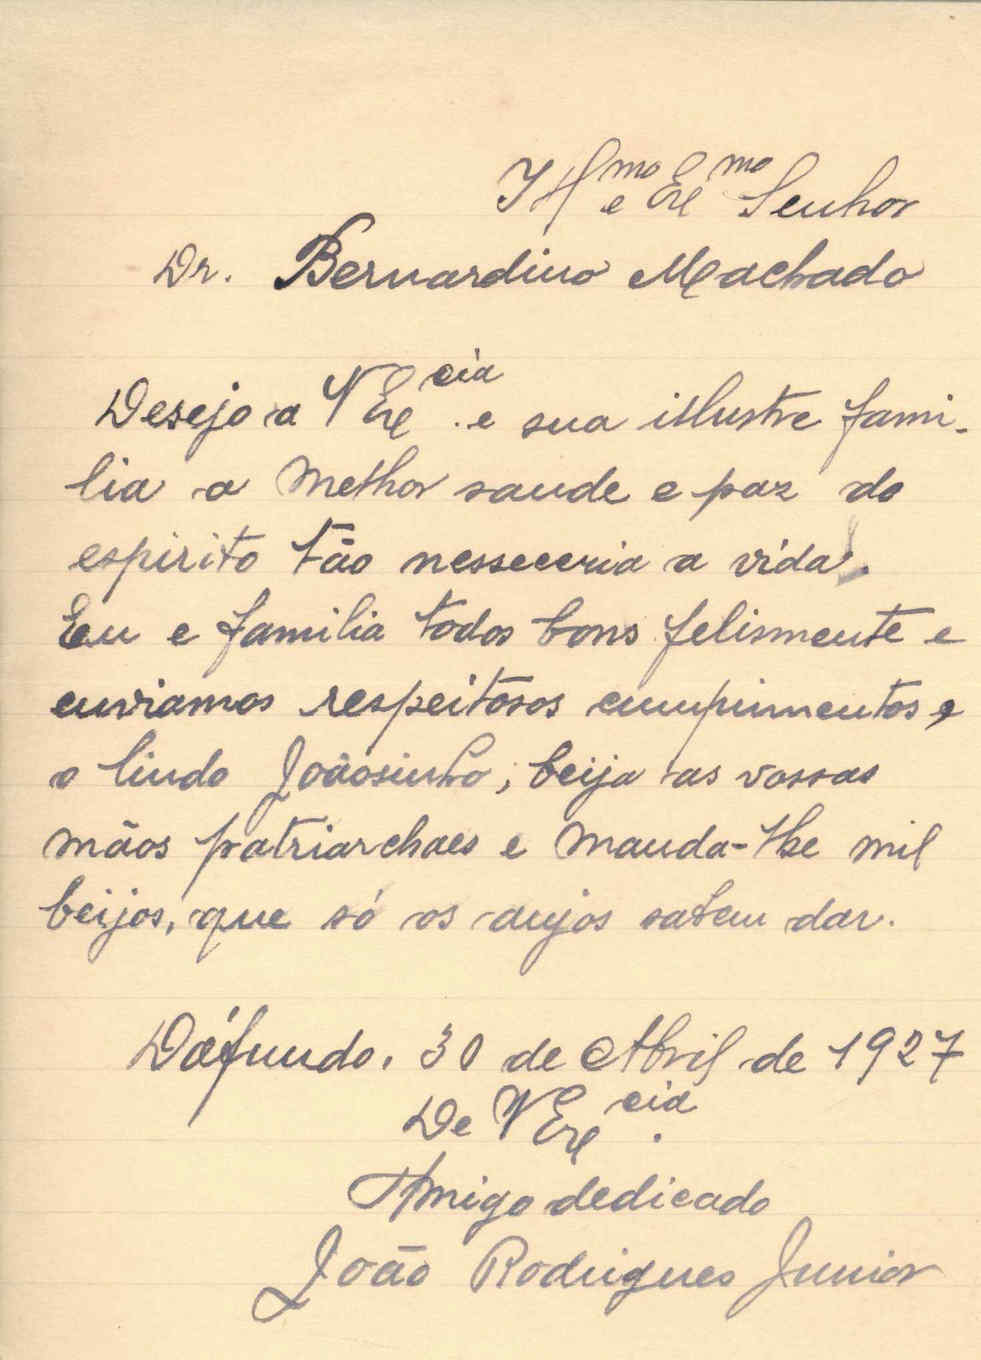 Ill^mo e Ex^mo Senhor
Dr. Bernardino Machado
Desejo a V Ex^cia. e sua illustre fami-
lia a melhor saude e paz do
espirito tão nesseceria a vida.
Eu e familia todos bons felismente e
enviamos respeitosos cumpimentos e
o lindo Joãosinho, beija as vossas
mãos patriarchaes e manda-lhe mil
beijos, que só os anjos sabem dar.
Dáfundo, 30 de Abril de 1927
De V Ex^cia.
Amigo dedicado
João Rodrigues Junior